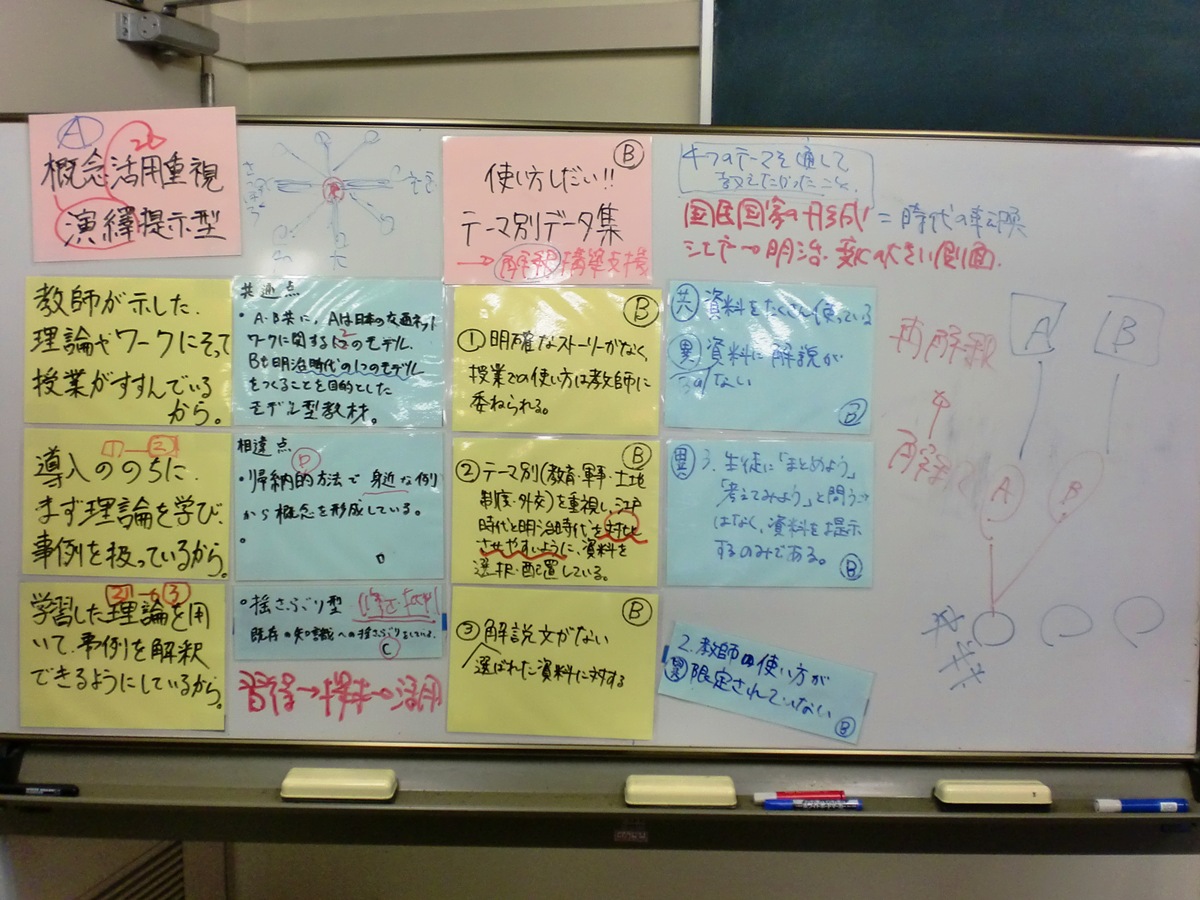 A
概念活用重視
演繹提示型
教師が示した、
理論やワークにそって
授業がすすんでいる
から。
導入ののちに、
まず理論を学び、
事例を扱っているから。
学習した理論を用
いて、事例を解釈
できるようにしているから。
共通点
・A・B共に、Aは日本の交通ネット
ワークに関する2つのモデル、
Bも明治時代の1つのモデル
をつくることを目的とした
モデル型教材。
相違点
・帰納的方法で身近な例
から概念を形成している。
D
・揺さぶり型
既存の知識への揺さぶりをしている。
C
習得→探求→活用
B
使い方しだい!!
テーマ別データ集
→解釈構築支援
B
①明確なストーリーがなく、
授業での使い方は教師に
委ねられる。
B
②テーマ別(教育・軍事・土地
制度・外交)を重視し、江戸
時代と明治時代を対比
させやすいように、資料を
選択・配置している。
B
③解説文がない
選ばれた資料に対する
4つのテーマを通して
教えたかったこと。
国民国家の形成 = 時代の転換
江戸→明治 変化の大きい側面
共 資料をたくさん使っている
異 資料に解説が
ない
B
異 3. 生徒に「まとめよう」
「考えてみよう」と問う
はなく、資料を提示
するのみである。
B
2. 教師の使い方が
異 限定されていない
B
再解釈
A B
解釈
A B